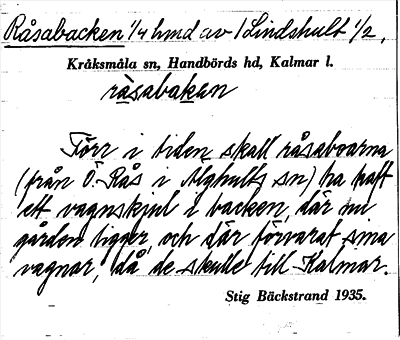 Råsabacken 1/4 hmd av 1 Lindshult 1/2,
Kråksmåla sn, Handbörds hd, Kalmar l.
ràsabakan
Förr i tiden skall råsaboarna
(från Ö. Rås i Älghults sn) ha haft
ett vagnskjul i backen, där nu
gården ligger, och där förvarat sina
vagnar, då de skulle till Kalmar.
Stig Bäckstrand 1935.